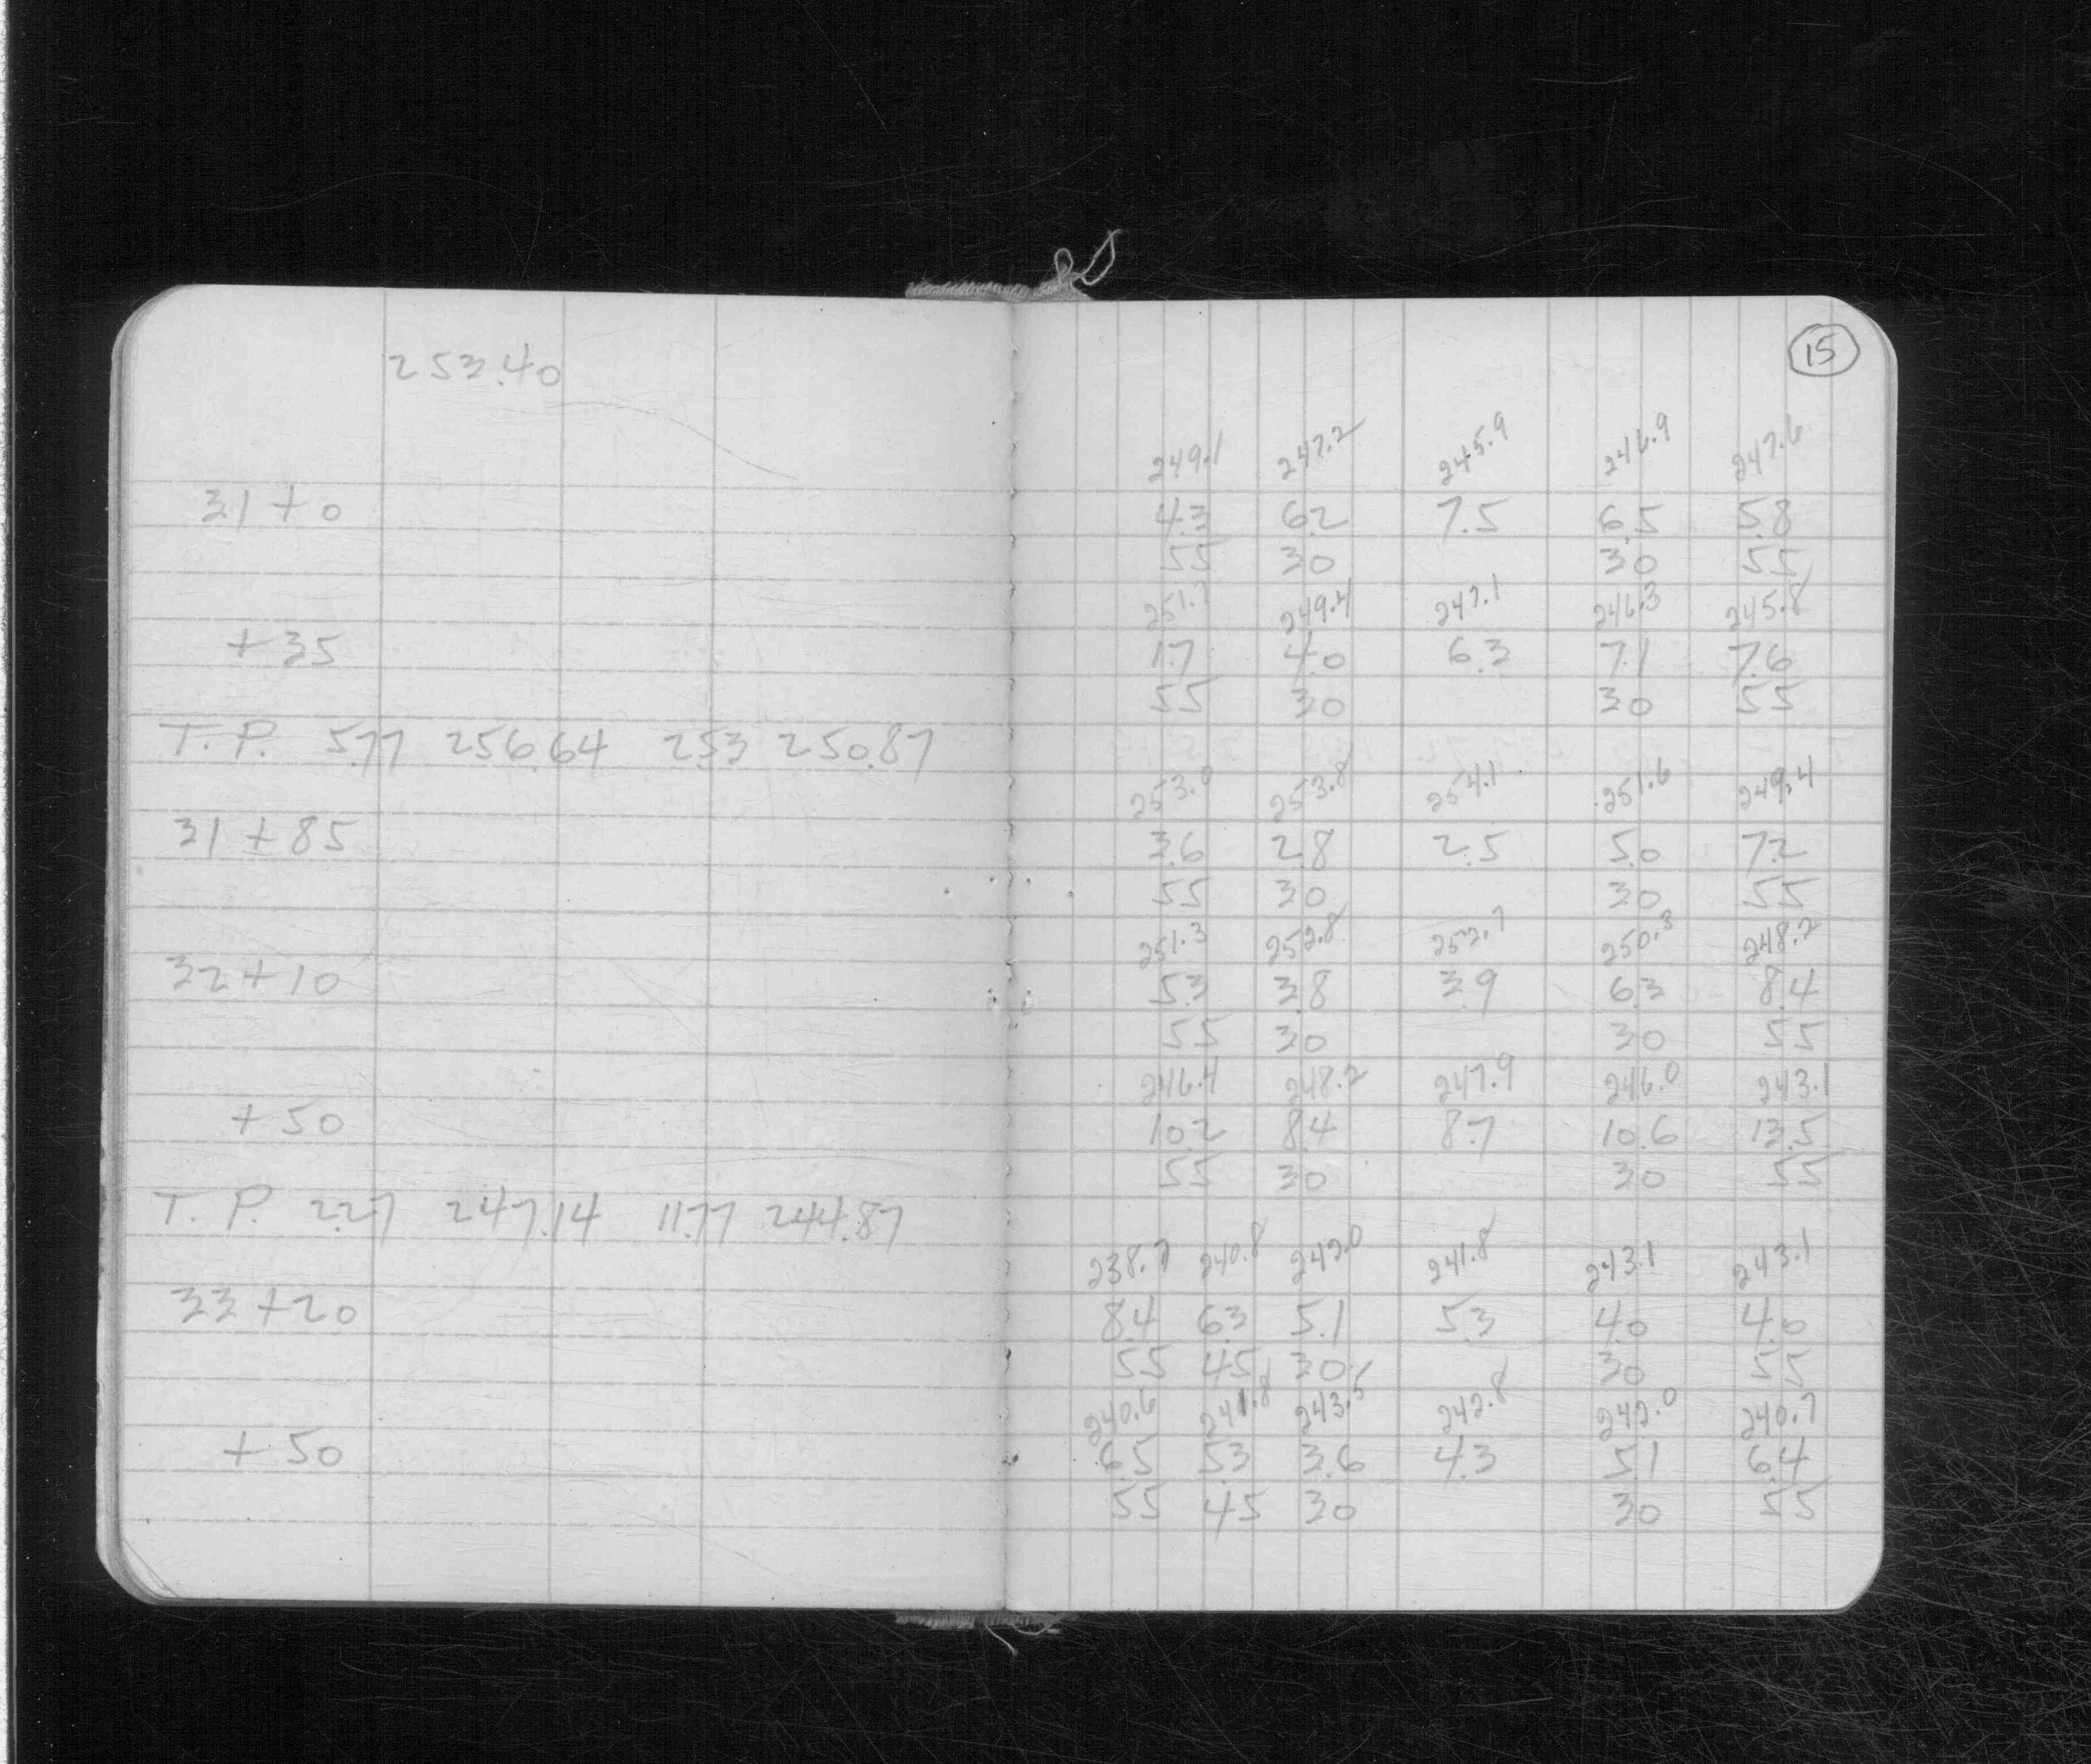 15
253.40
249.1 247.2 245.9 246.9 247.6
31+0 4.3 6.2 7.5 6.5 5.8
55 30 30 55
251.7 249.4 247.1 246.3 245.8
+35 1.7 4.0 6.3 7.1 7.6
55 30 30 55
T. P. 5.77 256.64 2.53 250.87
253.0 253.8 254.1 251.6 249.4
31+85 3.6 2.8 2.5 5.0 7.2
55 30 30 55
251.3 252.8 252.7 250.3 248.2
32+10 5.3 3.8 3.9 6.3 8.4
55 30 30 55
246.4 248.2 247.9 246.0 243.1
+50 10.2 8.4 8.7 10.6 13.5
55 30 30 55
T. P. 2.27 247.14 11.77 244.87
238.7 240.8 242.0 241.8 243.1 243.1
33+20 8.4 6.3 5.1 5.3 4.0 4.0
55 45 30 30 55
240.6 241.8 243.5 242.8 242.0 240.7
+50 6.5 5.3 3.6 4.3 5.1 6.4
55 45 30 30 55